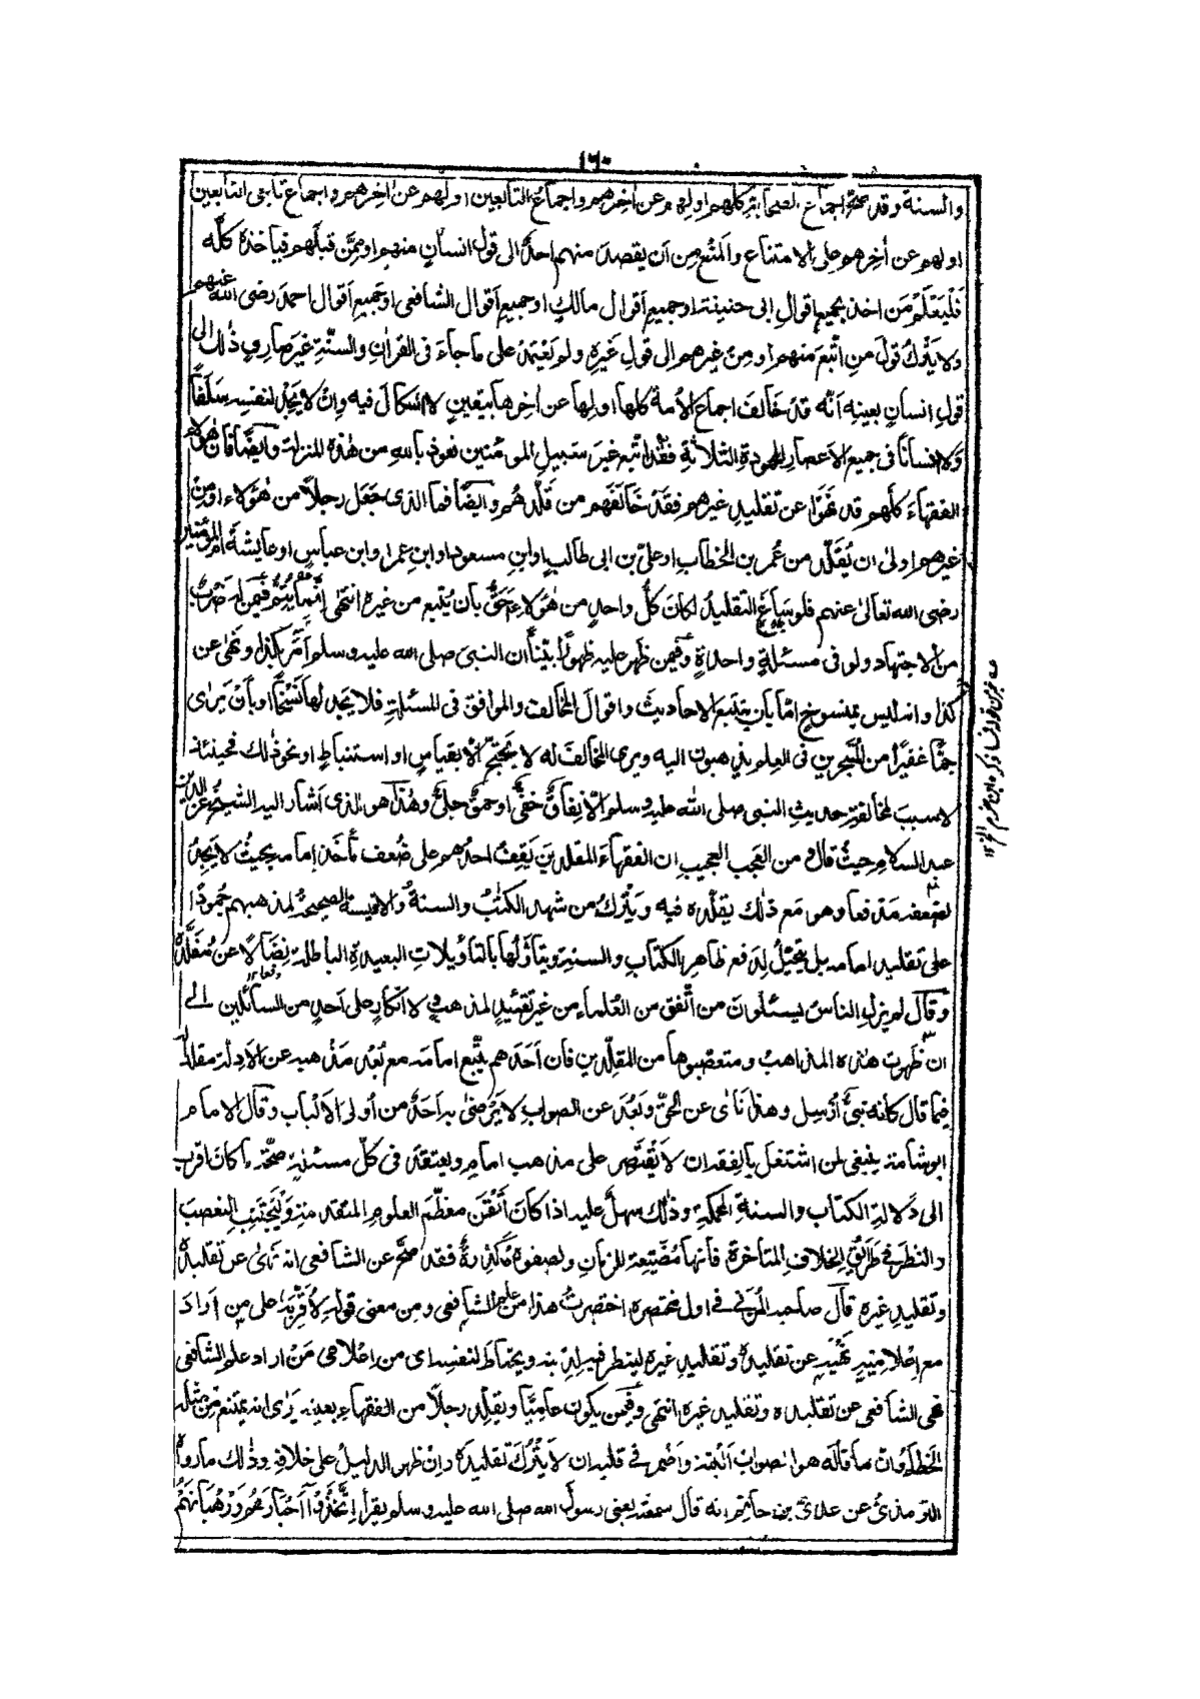 ١٦٠
والسنة وقد صح اجماع الصحابة كلهم اولهم عن اٰخرهم واجماع التابعين اولهم عن اٰخرهم واجماع تابعي التابعين
اولهم عن اٰخرهم على الامتناع والمنع من ان يقصد منهم احد الى قول انسان منهم او ممن قبلهم فياخذه كله
فليعلم من اخذ بجميع اقوال ابى حنيفة او جميع اقوال مالك او جميع اقوال الشافعى او جميع اقوال احمد رضى الله عنهم
ولا يترك قول من اتبع منهم او من غيرهم الى قول غيره ولم يعتمد على ما جاء فى القراٰن والسنة غير صارف ذٰلك الى
قول انسان بعينه انه قد خالف اجماع الامة كلها اولها عن اٰخرها بيقين لا اشكال فيه وانه لا يجد لنفسه سلفا
ولا انسانا فى جميع الاعصار المحمودة الثلاثة فقد اتبع غير سبيل المومنين نعوذ بالله من هٰذه المنزلة وايضا فان هٰؤلاء
الفقهاء كلهم قد نهوا عن تقليد غيرهم فقد خالفهم من قلدهم وايضا فما الذى جعل رجلا من هٰؤلاء او من
غيرهم اولىٰ ان يقلد من عمر بن الخطاب او على بن ابى طالب او ابن مسعود او ابن عمر او ابن عباس او عايشة ام المؤمنين
رضى الله تعالىٰ عنهم فلو ساغ التقليد لكان كل واحد من هٰؤلاء احق بان يتبع من غيره انتهى انما يتم فيمن له ضرب
من الاجتهاد ولو فى مسئلة واحدة وفيمن ظهر عليه ظهورا بينا ان النبى صلى الله عليه وسلم امر بكذا ونهىٰ عن
كذا وانه ليس بمنسوخ اما بان يتتبع الاحاديث واقوال المخالف والموافق فى المسئلة فلا يجد لها نسخا او بان يرىٰ
جما غفيرا من المتبحرين فى العلم يذهبون اليه ويرى المخالف له لا يحتج الا بقياس او استنباط او نحو ذٰلك فحينئذ
لا سبب لمخالفة حديث النبى صلى الله عليه وسلم الا نفاق خفى او حمق جلى وهٰذا هو الذى اشار اليه الشيخ عز الدين
عبد السلام حيث قال ومن العجب العجيب ان الفقهاء المقلدين يقف احدهم على ضعف ماخذ امامه بحيث لا يجد
لضعفه مدفعا وهو مع ذٰلك يقلده فيه ويترك من شهد الكتٰب والسنة والاقيسة الصحيحة لمذهبهم جمودا
على تقليد امامه بل يتحيل لدفع ظاهر الكتاب والسنة ويتاولها بالتأويلات البعيدة الباطلة نضالا عن مقلده
وقال لم يزل الناس يسئلون من اتفق من العلماء من غير تقييد لمذهب ولا انكار على احد من السائلين الى
ان ظهرت هٰذه المذاهب ومتعصبوها من المقلدين فان احدهم يتبع امامه مع بعد مذهبه عن الادلة مقلدا له
فيما قال كانه نبى ارسل وهٰذا نأى عن الحق وبعد عن الصواب لا يرضىٰ به احد من اولى الالباب وقال الامام
ابو شامة ينبغى لمن اشتغل بالفقه ان لا يقتصر على مذهب امام ويعتقد فى كل مسئلة صحة ما كان اقرب
الى دلالة الكتاب والسنة المحكمة وذٰلك سهل عليه اذا كان اتقن معظم العلوم المتقدمة وليجتنب التعصب
والنظر فى طرائق الخلاف المتاخرة فانها مضيعة للزمان ولصفوه مكدرة فقد صح عن الشافعى انه نهىٰ عن تقليده
وتقليد غيره قال صاحبه المزنى فى اول مختصره اختصرت هذا من علم الشافعى ومن معنى قوله لاقربه على من اراد
مع اعلاميه نهيه عن تقليده وتقليد غيره لينظر فيه لدينه ويحتاط لنفسه اى من اعلامى من اراد علم الشافعى
نهى الشافعى عن تقليده وتقليد غيره انتهى وفيمن يكون عاميا ويقلد رجلا من الفقهاء بعينه يرى انه يمتنع من مثله
الخطأ وان ما قاله هو الصواب البتة واضمر فى قلبه ان لا يترك تقليده وان ظهر الدليل على خلافه وذٰلك ما رواه
الترمذى عن عدى بن حاتم انه قال سمعته يعنى رسول الله صلى الله عليه وسلم يقرأ اتخذوا احبارهم ورهبانهم